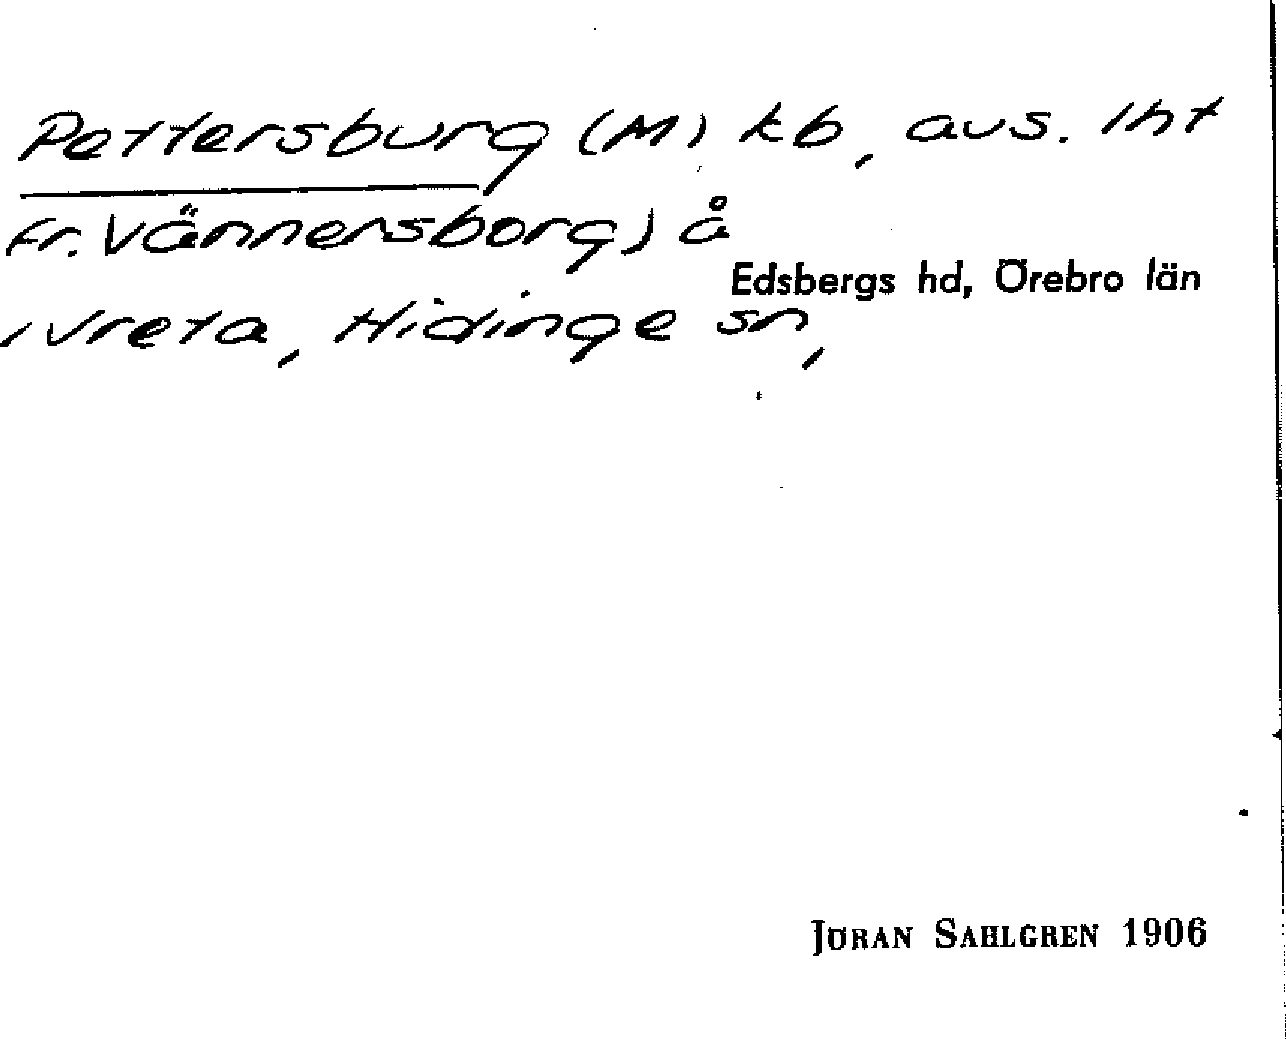 Pettersburg (M), kb, avs. lht
fr. Vännersborg) å
Edsbergs hd, Örebro län
Vreta, Hidinge sn,
JÖRAN SAHLGREN 1906